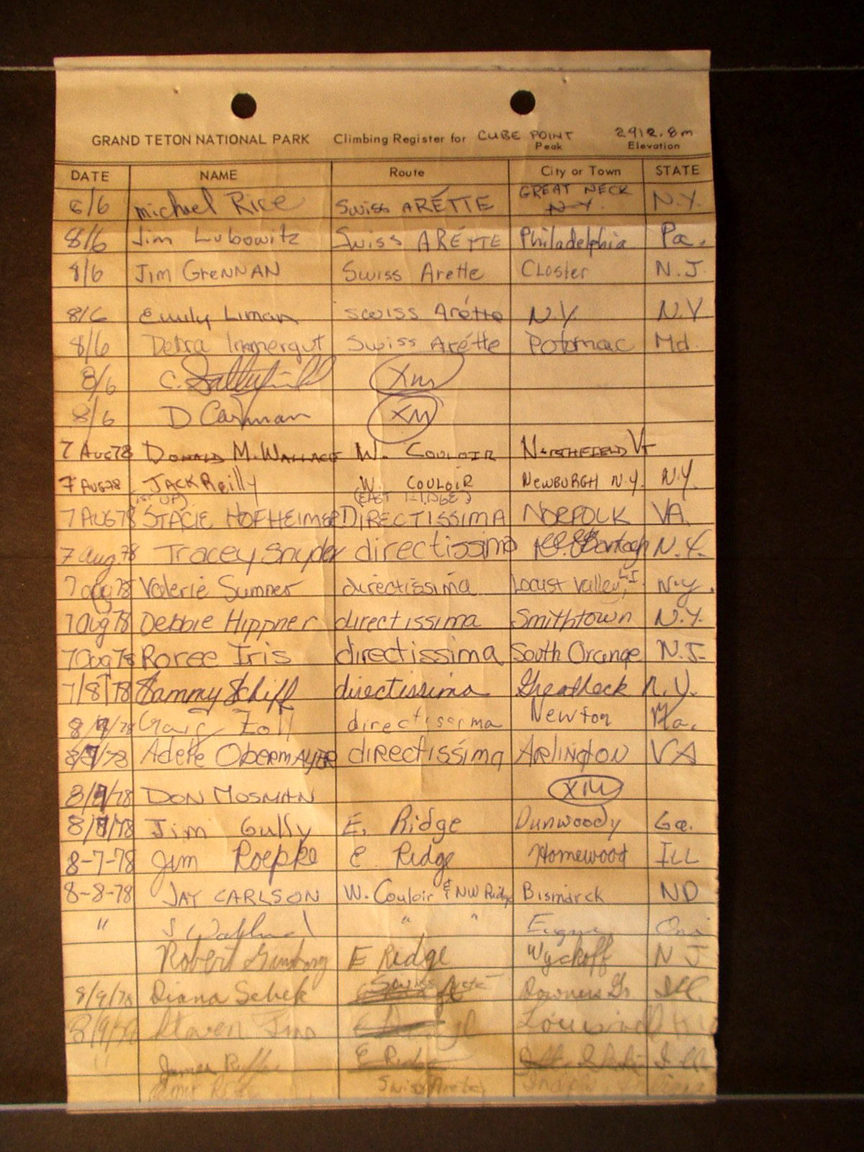 GRAND TETON NATIONAL PARK Climbing Register for CUBE POINT Peak 2912.8m Elevation
DATE NAME Route City or Town STATE
8/6 Michael Rice Swiss ARÉTTE GREAT NECK N.Y. N.Y.
8/6 Jim Lubowitz Swiss ARÉTTE Philadelphia Pa.
8/6 Jim GRENNAN Swiss Arette Closter N.J.
8/6 Emily Liman swiss Arétte N.Y. N.Y
8/6 Debra Immergut Swiss Arétte Potomac Md.
8/6 C. Satterfield XM
8/6 D Carman XM
7 AUG78 DONALD M. WALLACE W. COULOIR NORTHFIELD Vt
7 AUG78 JACK Reilly W. COULOIR NEWBURGH N.Y. N.Y.
(1ST UP) (EAST RIDGE)
7 AUG 78 STACIE HOFHEIMER DIRECTISSIMA NORFOLK VA.
7 Aug 78 Tracey Snyder directissima N.Y.
7 aug 78 Valerie Sumner directissima Locust Valley, L.I. N.y.
7 Aug 78 Debbie Hippner directissima Smithtown N.Y.
7 Aug 78 Roree Iris directissima South Orange N.J.
7/8/78 Sammy Schiff directissima Great Neck N.Y.
8/7/78 Craig Zoll directissima Newton Ma.
8/7/78 Adele Obermayer directissima Arlington VA
8/7/78 DON MOSMAN XM
8/7/78 Jim Gully E. Ridge Dunwoody Ga.
8-7-78 Jim Roepke E Ridge Homewood ILL
8-8-78 JAY CARLSON W. Couloir & NW Ridge Bismarck ND
" S " "
Robert E Ridge Wyckoff N J
8/9/78 Diana Sebek Swiss Downers Gr Ill.
8/9/78 Steven
" James E Ridge Ill
Swiss Arete